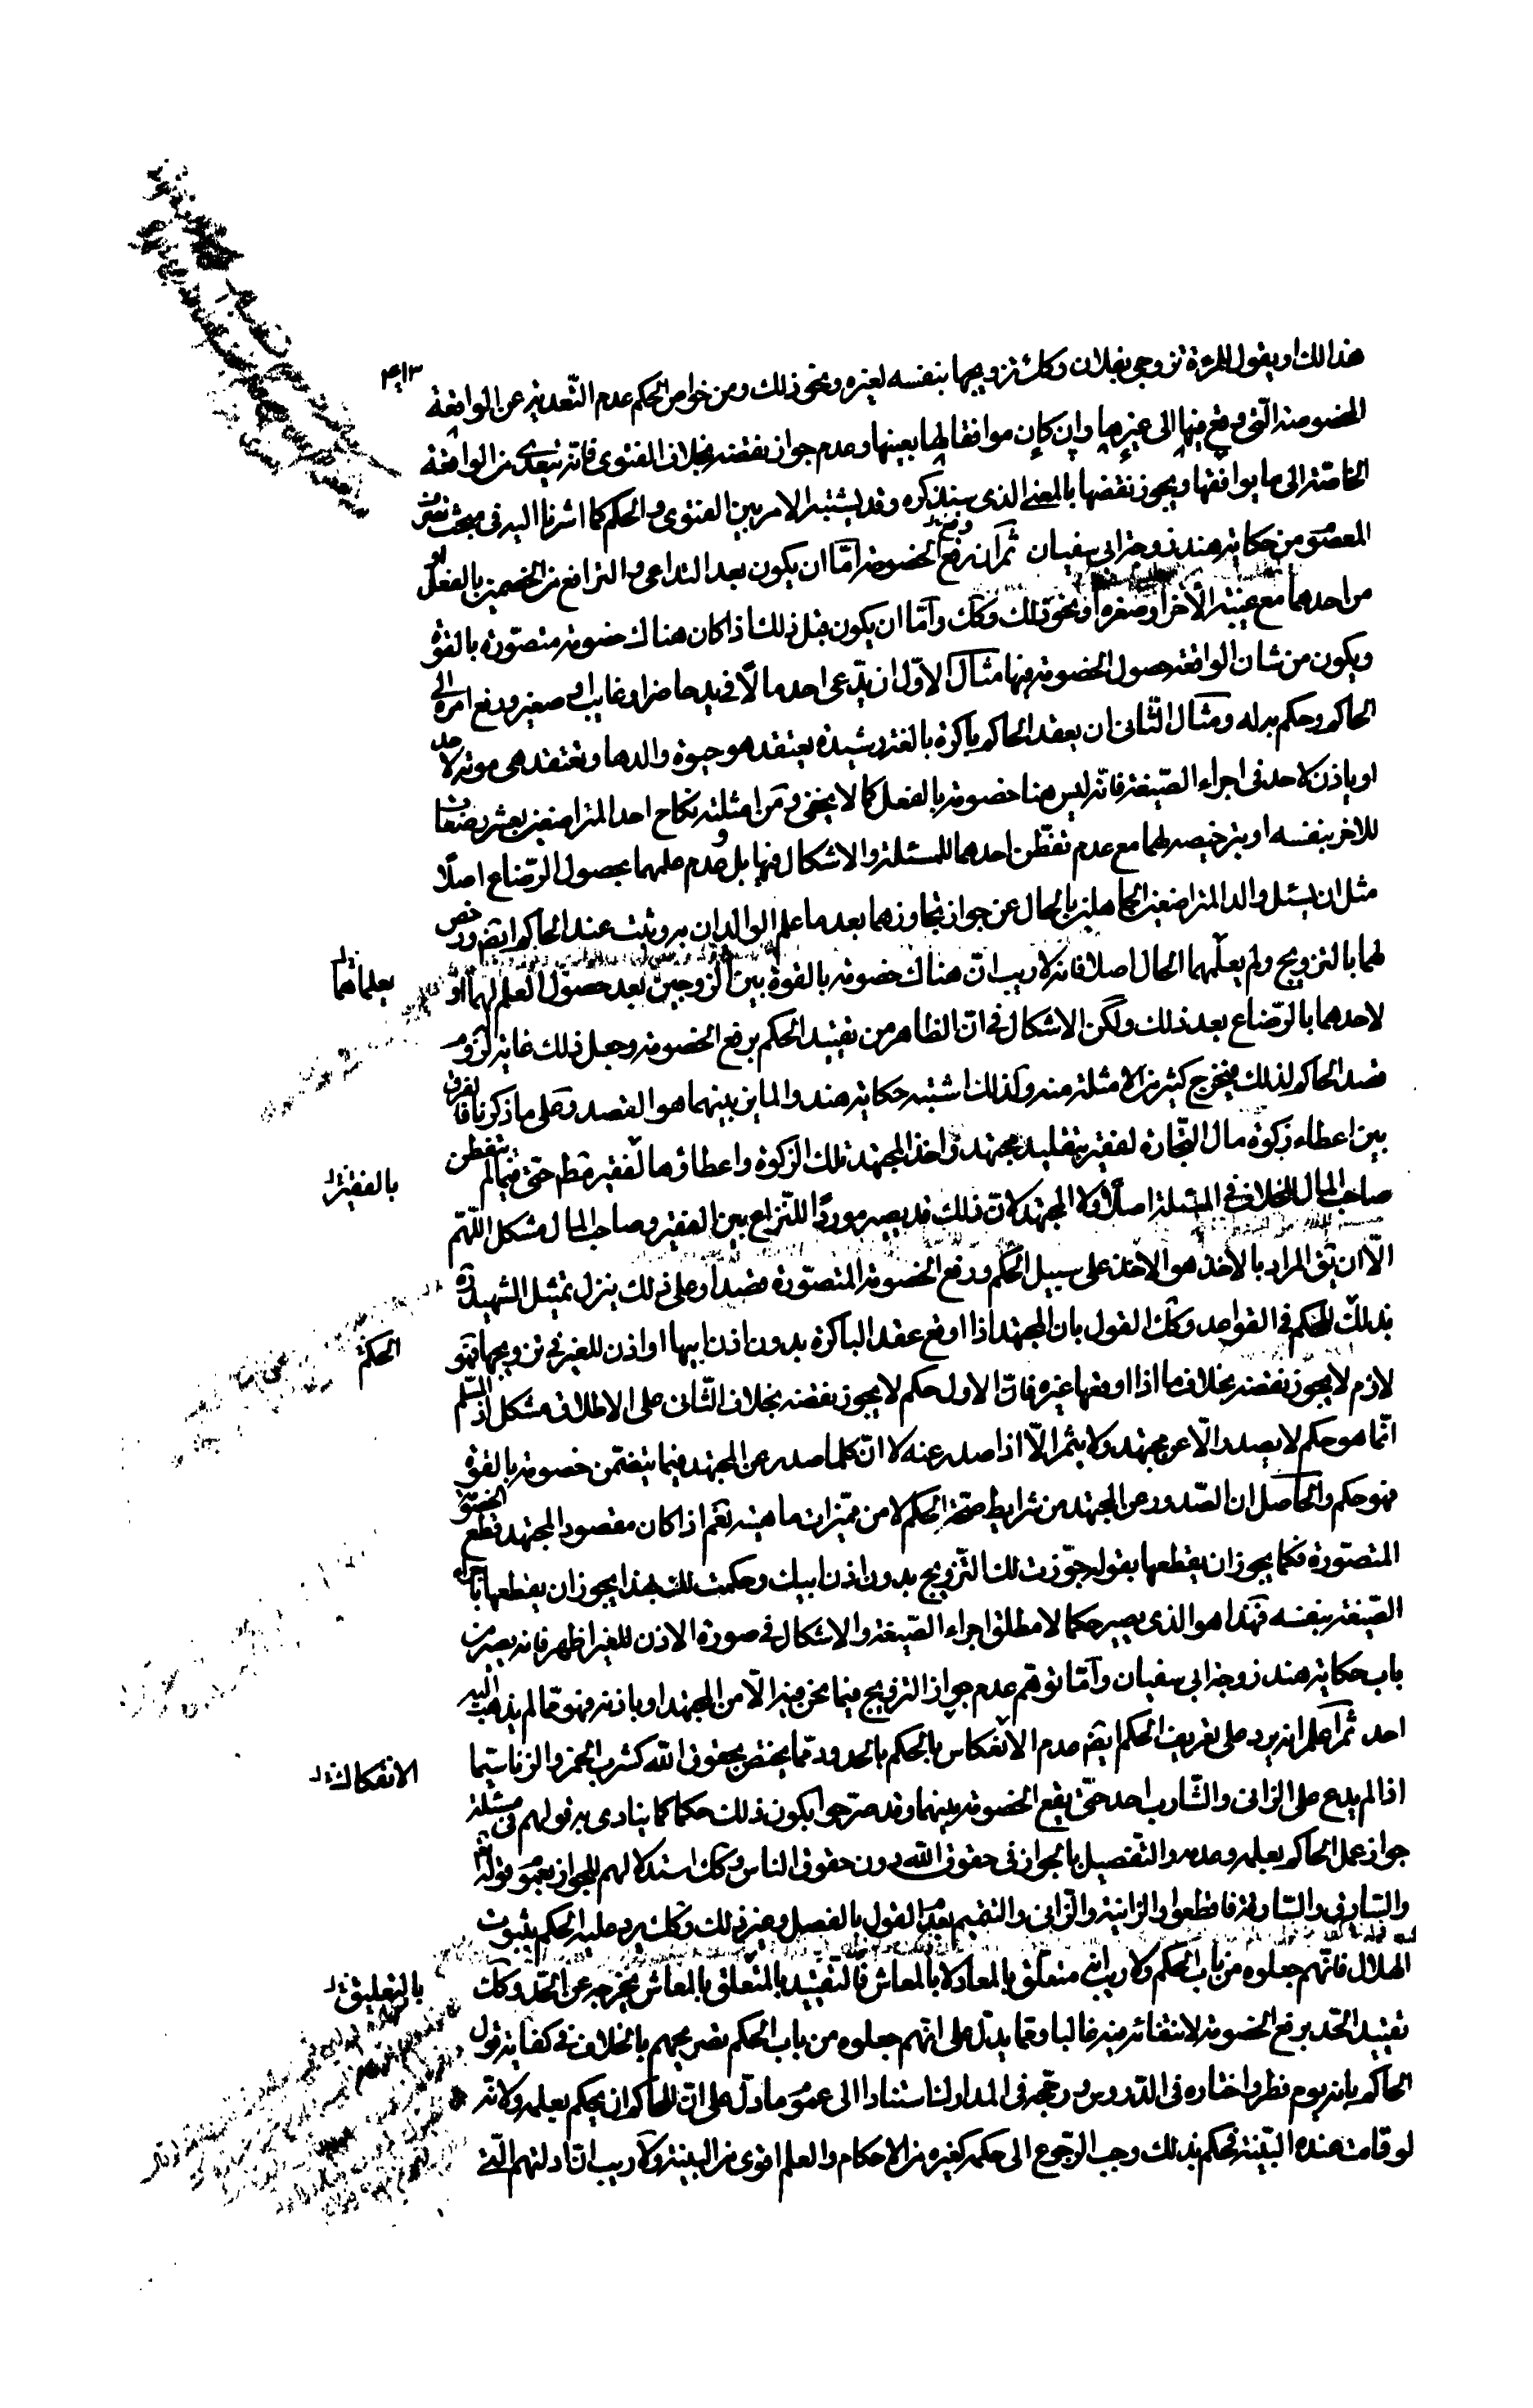 هذا لك او يقول للمرئة تزوجى بفلان وكك تزويجها بنفسه لغيره ونحو ذلك ومن خواص الحكم عدم التّعديته عن الواقعة
المخصوصة الّتى وقع فيها الى غيرها وان كان موافقا لها بعينها وعدم جواز نقضه بخلاف الفتوى فانّه يتعدى من الواقعة
الخاصّة الى ما يوافقها ويجوز نقضها بالمعنى الذى سنذكره وقد يشتبه الامر بين الفتوى والحكم كما اشرنا اليه فى مبحث تقرير
المعصوم من حكاية هند زوجة ابى سفيان ثمّ ان رفع الخصومة امّا ان يكون بعد التداعى والترافع من الخصمين بالفعل او
من احدهما مع غيبة الاخر او صغره او نحو ذلك وكك وامّا ان يكون قبل ذلك اذا كان هناك خصومة متصوّرة بالقوة
ويكون من شان الواقعة حصول الخصومة فيها مثال الاوّل ان يدّعى احد مالا فى يد حاضر او غايب او صغير ورفع امره الى
الحاكم وحكم به له ومثال الثّانى ان يعقد الحاكم باكرة بالغة رشيدة يعتقد هو حيوة والدها وتعتقد هى موته لاحد
او ياذن لاحد فى اجراء الصّيغة فانّه ليس هنا خصومة بالفعل كما لا يخفى ومن امثلته نكاح احد المتراضعين بعشر رضعات
للاخر بنفسه او بترخيصه لهما مع عدم تفطّن احدهما للمسئلة والاشكال فيها بل وعدم علمهما بحصول الرّضاع اصلًا
مثل ان يسئل والد المتراضعين الجاهلين بالحال عن جواز تجاوزهما بعد ما علم الوالدان به وثبت عند الحاكم ايضا ورخص
لهما بالتزويج ولم يعلّمهما الحال اصلا فانه لا ريب انّ هناك خصومة بالقوة بين الزوجين بعد حصول العلم لهما او
لاحدهما بالرّضاع بعد ذلك ولكن الاشكال فى انّ الظاهر من تقييد الحكم برفع الخصومة وجعل ذلك غاية لزوم
قصد الحاكم لذلك فيخرج كثير من الامثلة منه ولذلك اشتبه حكاية هند والمايز بينهما هو القصد وعلى ما ذكرنا فالفرق
بين اعطاء زكوة مال التّجارة لفقير بتقليد مجتهد واخذ المجتهد تلك الزكوة واعطاؤها لفقير فقط حتّى فيما لم يتفطن
صاحب المال للخلاف فى المسئلة اصلًا ولا المجتهد لانّ ذلك قد يصير موردًا للنّزاع بين الفقير وصاحب المال مشكل اللّهم
الّا ان يق المراد بالاخذ هو الاخذ على سبيل الحكم ورفع الخصومة المتصوّرة قصدا وعلى ذلك ينزل تمثيل الشهيد ره
بذلك للحكم فى القواعد وكك القول بان المجتهد اذا اوقع عقد الباكرة بدون اذن ابيها او اذن للغير فى تزويجها فهو
لازم لا يجوز نقضه بخلاف ما اذا اوقعها غيره فانّ الاول حكم لا يجوز نقضه بخلاف الثّانى على الاطلاق مشكل اذ المسلّم
انّما هو حكم لا يصدر الّا عن مجتهد ولا يثمر الّا اذا صدر عنه لا انّ كلما صدر عن المجتهد فيما يتضمّن خصومة بالقوة
فهو حكم والحاصل ان الصّدور عن المجتهد من شرايط صحّة الحكم لا من مميّزات ماهيته نعم اذا كان مقصود المجتهد قطع الخصومة
المتصوّرة فكما يجوز ان يقطعها بقوله جوّزت لك التّزويج بدون اذن ابيك وحكمت لك بهذا يجوز ان يقطعها باجراء
الصّيغة بنفسه فهذا هو الذى يصير حكما لا مطلق اجراء الصّيغة والاشكال فى صورة الاذن للغير اظهر فانه يصير من
باب حكاية هند زوجة ابى سفيان وامّا توهّم عدم جواز التزويج فيما نحن فيه الّا من المجتهد او باذنه فهو ممّا لم يذهب اليه
احد ثمّ اعلم انه يرد على تعريف الحكم ايضا عدم الانعكاس بالحكم بالحدود ممّا يختص بحقوق اللّه كشرب الخمر والزنا سيّما
اذا لم يدع على الزانى والشّارب احد حتّى يقع الخصومة بينهما وقد صرّحوا بكون ذلك حكما كما ينادى به قولهم فى مسئلة
جواز عمل الحاكم بعلمه وعدمه والتفصيل بالجواز فى حقوق اللّه دون حقوق الناس وكك استدلالهم للجواز بعموم قوله تع
والسّارق والسّارقة فاقطعوا والزانية والزانى والتتميم بعدم القول بالفصل وغير ذلك وكك يرد عليه الحكم بثبوت
الهلال فانّهم جعلوه من باب الحكم ولا ريب انه متعلّق بالمعاد لا بالمعاش فالتّقييد بالمتعلّق بالمعاش يخرجه عن الحدّ وكك
تقييد الحّد برفع الخصومة لانتفائه فيه غالبا وممّا يدلّ على انّهم جعلوه من باب الحكم تصريحهم بالخلاف فى كفاية قول
الحاكم بانه يوم فطر واختاره فى الدّروس ورجّحه فى المدارك استنادا الى عموم ما دلّ على انّ للحاكم ان يحكم بعلمه ولانّه
لو قامت عنده البيّنة فحكم بذلك وجب الرّجوع الى حكمه كغيره من الاحكام والعلم اقوى من البينة ولا ريب انّ ادلتهم الّتى
بعلماهما
بالفقير
الحكم
الانفكاك
بالتعليق